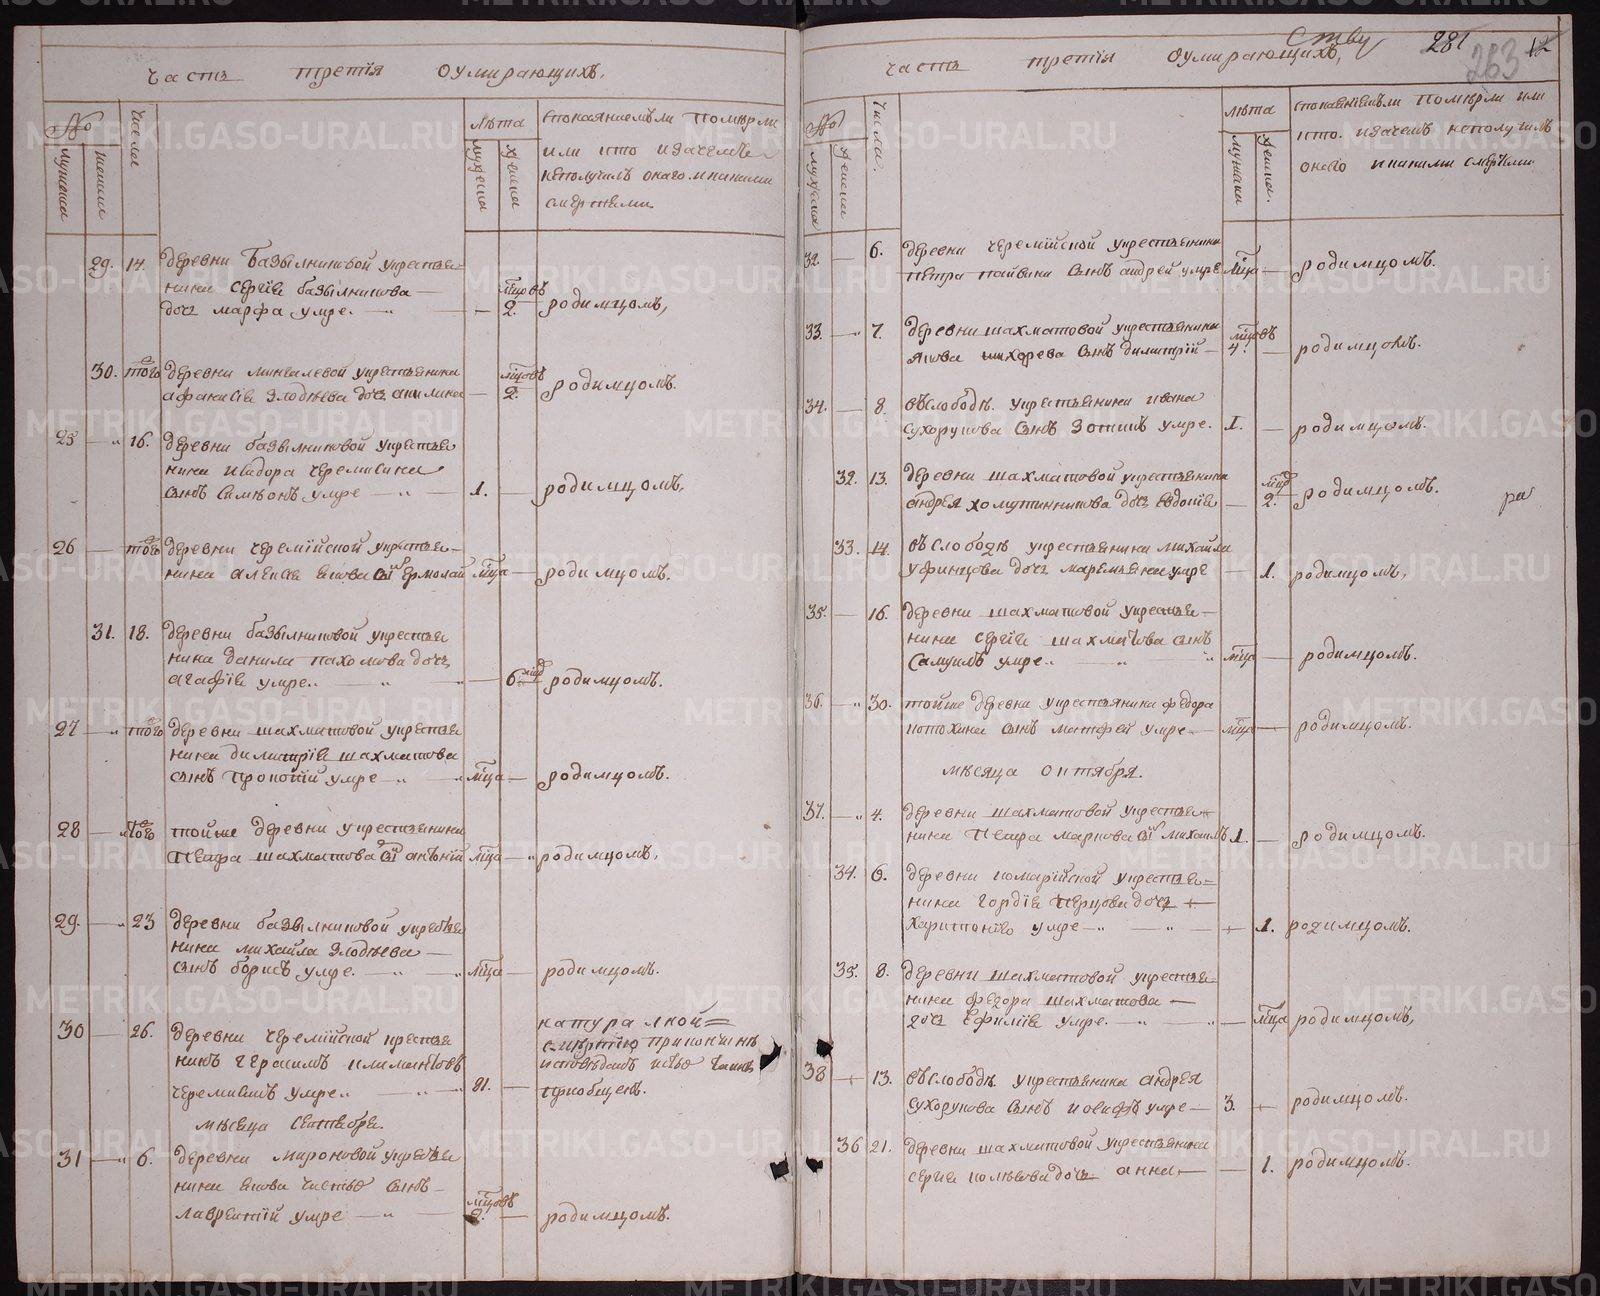 часть третiя оумирающихъ.
№
мужеска
женска
числа
лѣта
мужеска
женска
спокаянiемъли померли
или кто изачемъ
неполучилъ онаго. икакими
смертьми
29. 14. деревни Базылниковой укрестья
нина Сергiя базылникова
дочь марфа умре. мцовъ 2. родимцомъ,
30. того деревни михалевой укрестьянина
афанасiя злодѣева дочь акилина мцовъ 2. родимцомъ.
25 16. деревни базылниковой укрестья
нина исидора черемисина
сынъ Симеонъ умре 1. родимцомъ,
26 того деревни черемiйской укрестья
нина алексѣя якова сн ермолай мца родимцомъ.
31. 18. деревни базылниковой укрестья
нина данила пахомова дочь
агафiя умре.. 6. родимцомъ.
27 того деревни шахматовой укрестья
нина димитрiя шахматова
сынъ прокопiй умре мца родимцомъ.
28 того тойже деревни укрестьянина
петра шахматова сн ананiй мца родимцомъ,
29. 23 деревни базылниковой укрестья
нина михайла злодѣева
сынъ борисъ умре. мца родимцомъ.
30 26. деревни черемiйской крестья
нинъ герасимъ климантовъ
черемисинъ умре.. 81.
натуралной
смертiю прикончинѣ
исповѣданъ
прiобщенъ.
мѣсяца Сентебря.
31 6. деревни мироновой укрестья
нина якова сынъ
лаврентiй умре мцовъ родимцомъ.
281
263
12
часть третiя оумирающихъ,
№
мужеска
женска
числа.
лѣта
мужеска
женска.
спокаянiемъли померли или
кто. изачемъ неполучилъ
онаго икакими смертьми
32. 6. деревни черемiйской укрестьянина
петра пайвина сынъ андрей умре мца родимцомъ.
33. 7. деревни шахматовой укрестьянина
якова сынъ димитрiй мцовъ 4. родимцомъ.
34. 8. въслободѣ. укрестьянина ивана
сухорукова сынъ зотикъ умре. 1. родимцомъ.
32. 13. деревни шахматовой укрестьянина
андрея хомутинникова дочь Евдокiя 2. родимцомъ.
33. 14. въслободѣ укрестьянина михайла
уфинцова дочь маремьяна умре 1. родимцомъ,
35. 16. деревни шахматовой укрестья
нина Сергiя шахматова сынъ
Самуилъ умре.. мца родимцомъ.
36. 30. тойже деревни укрестьянина федора
потохина сынъ матфей умре мца родимцомъ.
мѣсяца октября.
37. 4. деревни шахматовой укрестья
нина петра маркова сн михаилъ 1. родимцомъ.
34. 6. деревни комарiйской укрестья
нина гордiя перцова дочь
харитонiя умре 1. родимцомъ.
35. 8. деревни шахматовой укрестья
нина федора шахматова
дочь Ефимiя умре. мца родимцомъ,
38 13. въслободѣ укрестьянина андрея
сухорукова сынъ иосифъ умре 3. родимцомъ.
36 21. деревни шахматовой укрестьянина
сергiя полѣкова дочь анна 1. родимцомъ.
METRIKI.GASO-URAL.RU